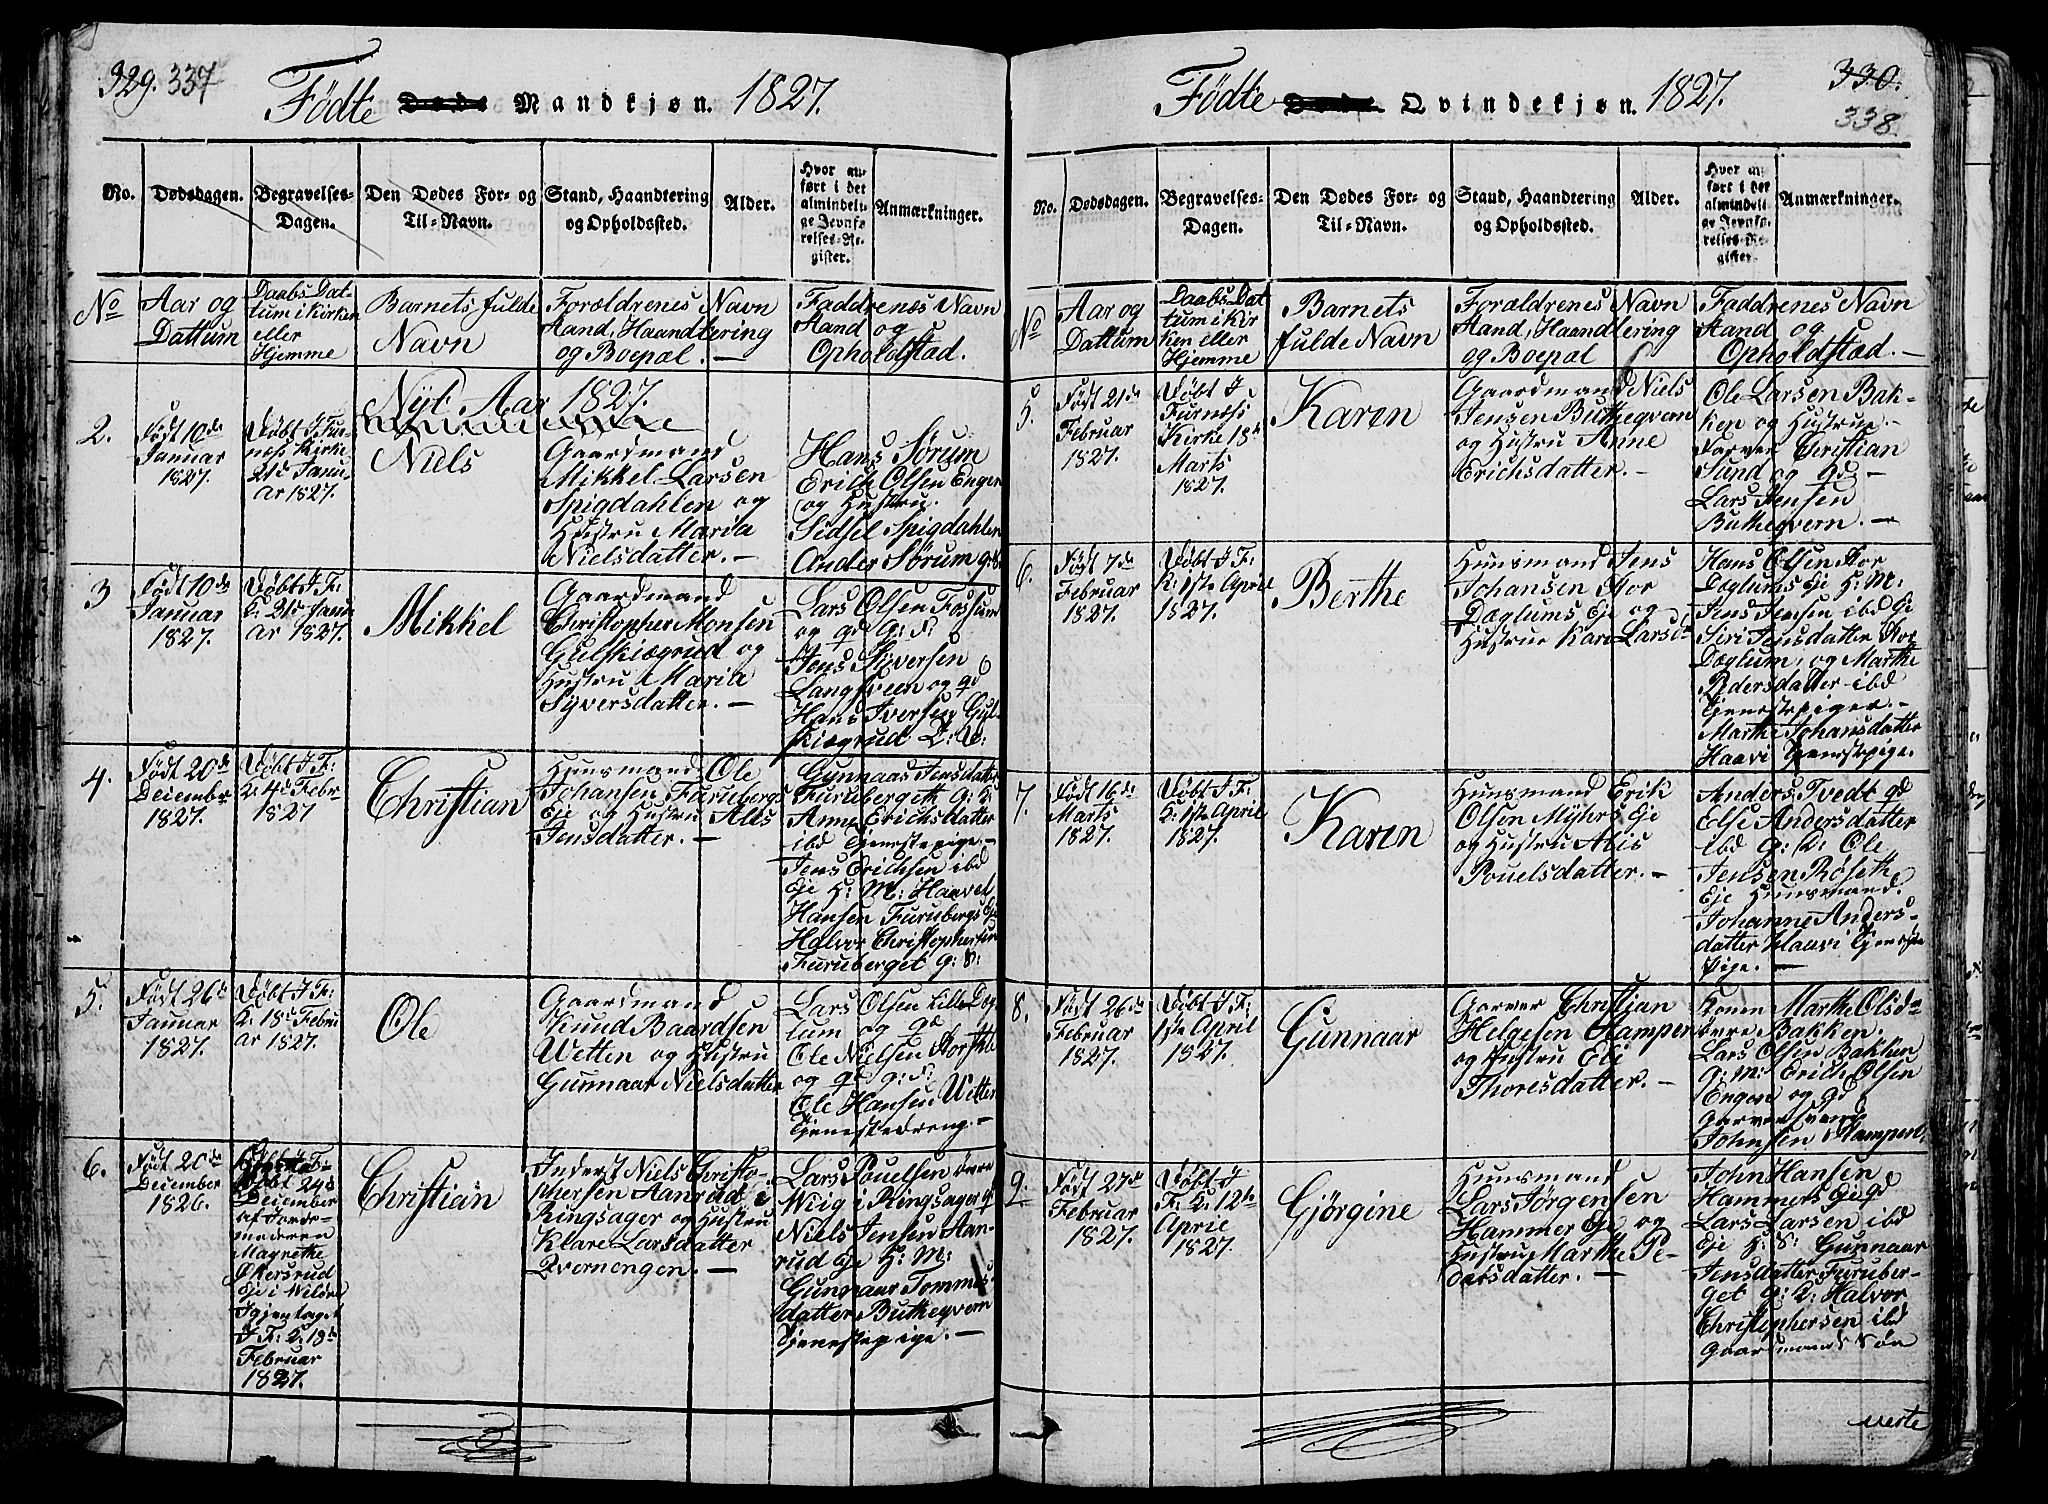 329. 337
Födte Døde Mandkjøn. 1827.
No.
Dødsdagen.
Begravelses-
Dagen.
Den Dødes For- og
Til-Navn.
Stand, Haandtering
og Opholdssted.
Alder.
Hvor an-
ført i det
almindeli-
ge Jevnfø-
relses-Re-
gister.
Anmærkninger.
No
Aar og
Dattum
Daabs Dat-
tum i Kirken
eller
Hjemme
Barnets fulde
Navn
Forældrenes Navn
Stand, Haandtering
og Boepæl. —
Faddrenes Navn
Stand og
Opholdstad.
Nyt Aar 1827.
2.
Født 10de
Januar
1827.
Døbt I Fur-
næs Kirke
21d Janu-
ar 1827.
Niels
Gaardmand
Mikkel Larsen
Spigdahlen og
Hustru Maria
Nielsdatter. —
Hans Sørum
Erich Olsen Enger
og Hustru.
Sidsel Spigdahlen
Ander Sørum g: S.
3
Født 10de
Januar
1827.
Døbt I F:
K: 21d Janu
ar 1827.
Mikkel
Gaardmand
Christopher Monsen
Gulskiægrud og
Hustru Maria
Syversdatter. —
Lars Olsen Fossum
og gd G: S:
Jens Syversen
Langsveen og gd
Hans Iversen Gul-
skiægrud
4.
Født 20de
Deicember
1827.
Døbt I F:
K: 4d Febr
1827
Christian
Huusmand Ole
Johansen Furubergs
Eje og Hustru Alis
Jensdatter. —
Gunnaas Jensdatter
Furuberget G: K:
Anne Erichsdatter
ibd Tjenestepige. —
Jens Erichsen ibd
Eje H: M: Haavel
Hansen Furubergs Eje
Halvor Christophersen
Furuberget G: S:
5.
Født 26d
Januar
1827.
Døbt I F:
K: 18d Febru
ar 1827.
Ole
Gaardmand
Knud Baardsen
Wetten og Hustru
Gunnaar Nielsdatter
Lars Olsen Lille Dog-
lum og gd
Ole Nielsen
og gd G: S:
Ole Hansen Wetten
Tjenestedreng. —
6.
Født 20de
Deicember
1826.
Døbt 24d
Deicember
af Jorde-
moderen
Magrethe
Økersrud
Eje i Weldre
Igjentaget
I F: K: 18de
Februar
1827.
Christian
Inderst Niels Christo-
phersen Aanrud i
Ringsager og Hustru
Klare Larsdatter
Qvernengen. —
Lars Pouelsen övre
Wiig i Ringsager gd
Niels Jensen Aan-
rud Eje H: M:
Gunnaar Tommes
datter Buthegvern
Tjenestepige. —
Födte Døde Qvindekjøn. 1827.
330.
338
No.
Dødsdagen.
Begravelses-
Dagen.
Den Dødes For- og
Til-Navn.
Stand, Haandtering
og Opholdssted.
Alder.
Hvor an-
ført i det
almindeli-
ge Jevnfø-
relses-Re-
gister.
Anmærkninger.
No
Aar og
Dattum
Daabs Dat
tum i Kir
ken eller
Hjemme
Barnets
fulde Navn
Forældrenes Navn
Stand, Haandtering
og Boepæl
Faddrenes Navn
Stand og
Opholdstæd. —
5.
Født 21de
Februar
1827.
Døbt I
Furnæss
Kirke 18de
Marts
1827.
Karen
Gaardmand Niels
Jensen Buthegvern
og Hustru Anne
Erichsdatter. —
Ole Larsen Bak-
ken og Hustrue. —
Farver Christian
Sund og gd —
Lars Jensen
Buthegvern. —
6.
Født 7de
Februar
1827.
Døbt I F:
K: 1ste April
1827.
Berthe
Huusmand Jens
Johansen Stor
Døglums Eje og
Hustrue Kari Larsd
Hans Olsen Stor
Døglums Eje H: M:
Jens Jensen ibd Eje
Siri Jensdatter Stor
Døglum, og Marthe
Pedersdatter ibd
Tjenestepiger. —
Marthe Johansdatter
Haavi Tjenestpige. —
7.
Født 16de
Marts
1827.
Døbt I F:
K: 1ste April
1827.
Karen
Huusmand Erik
Olsen Myhrs Eje
og Hustru Alis
Pouelsdatter. —
Anders Tvedt gd
Else Andersdatter
ibd G: K: Ole
Jensen Røseth
Eje Huusmand.
Johanne Anders-
datter Haavi Tjeneste
Pige. —
8.
Født 26de
Februar
1827.
Døbt I F:
1ste April
1827.
Gunnaar
Garver Christian
Helgesen Stampen
og Hustru Eli
Thoresdatter. —
Konen Marthe Olsda-
tere Bakken.
Lars Olsen Bakken
G: M: Erich Olsen
Engen og gd
Garver Svend
Johnsen Stampen
9.
Født 27de
Februar
1827.
Døbt I
F: K: 12te
Aprie
1827.
Gjörgine
Huusmand
Lars Jørgensen
Hammer Eje og
Hustru Marthe Pe-
dersdatter. —
John Hansen
Hammers Eje gd
Lars Larsen ibd
Eje H: S: Gunnaar
Jensdatter Furuber-
get G: K: Halvor
Christophersen ibd
Gaardmands Søn
verte